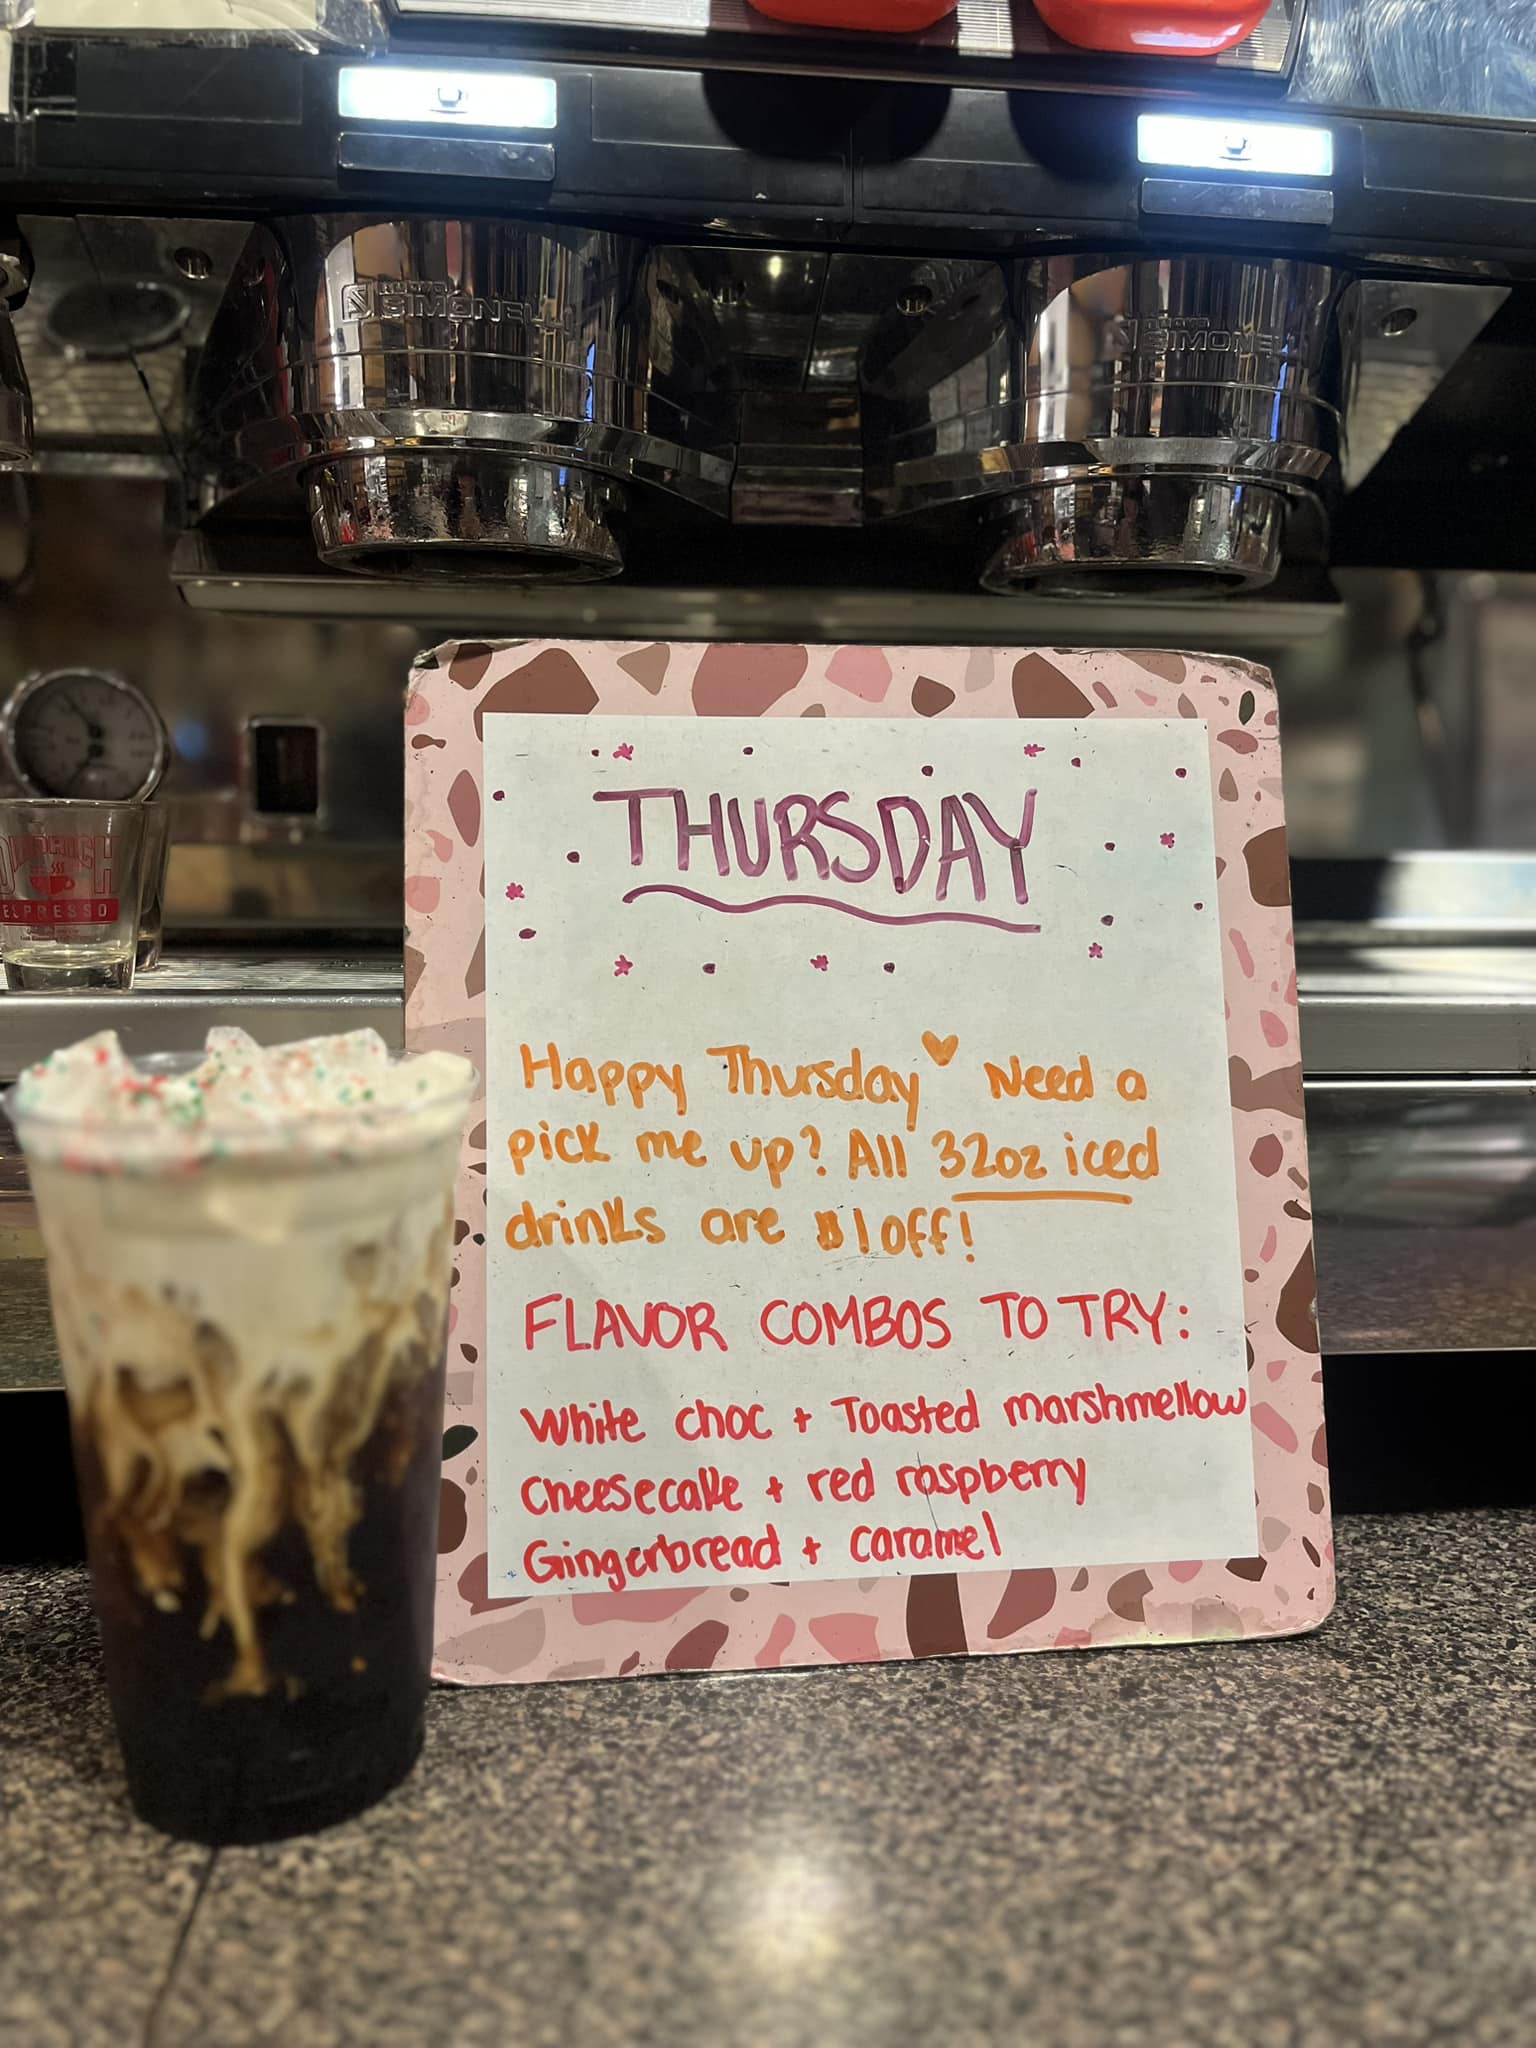 NUOVA
SIMONELLI
NUOVA
SIMONELLI
ESPRESSO
THURSDAY
Happy Thursday♥ Need a
pick me up? All 32oz iced
drinks are $1 off!
FLAVOR COMBOS TO TRY:
White choc + Toasted marshmellow
Cheesecake + red raspberry
Gingerbread + caramel